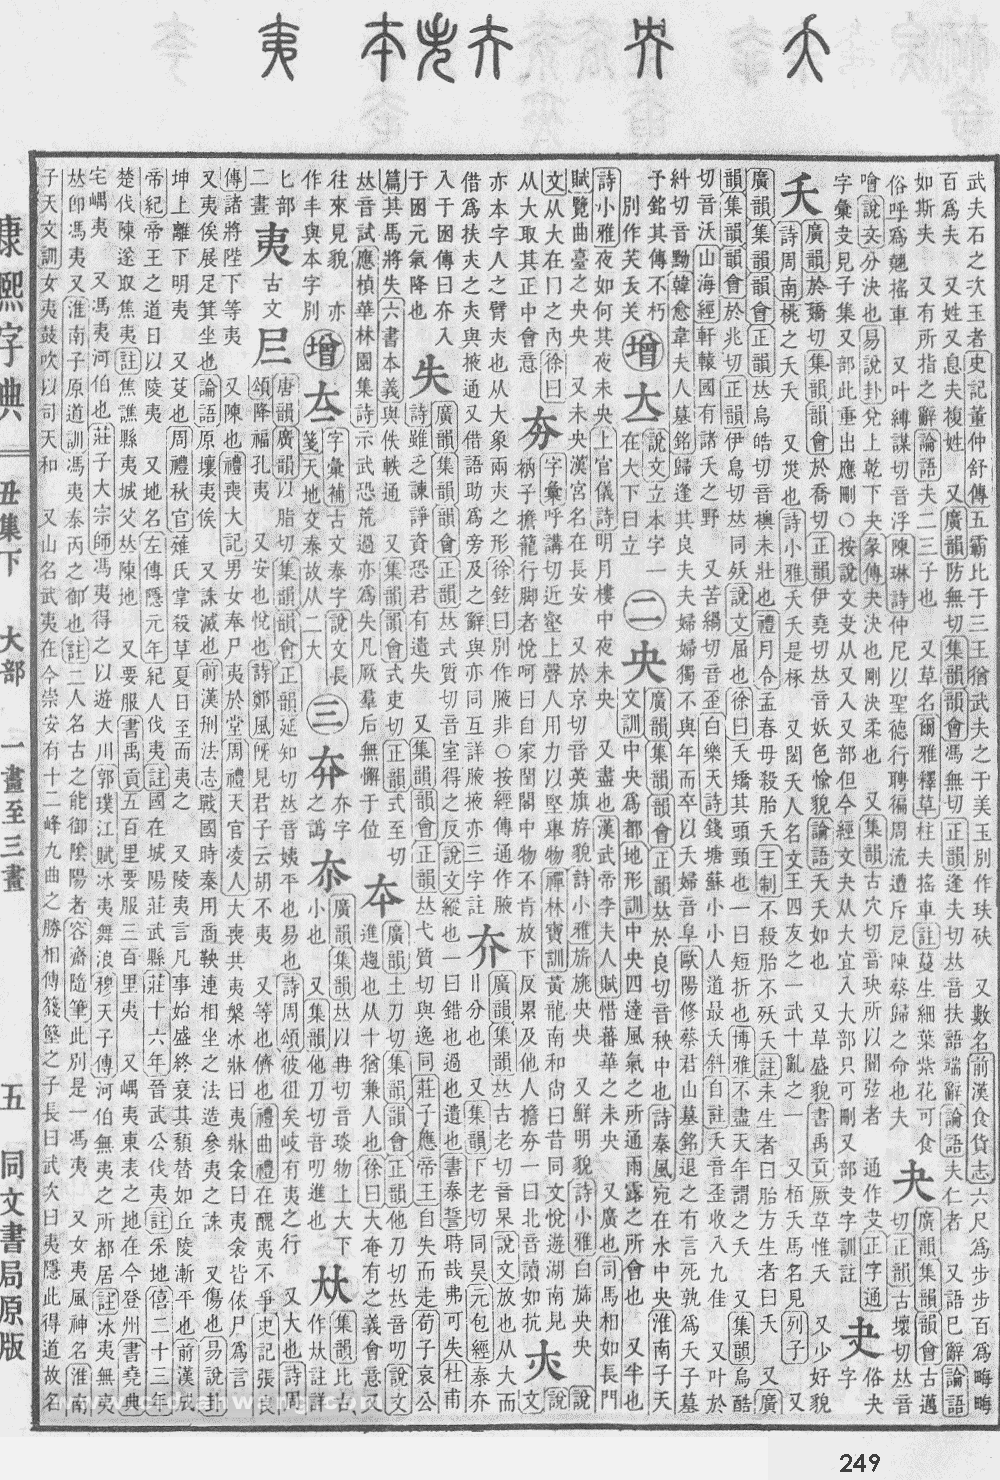 武夫石之次玉者史記董仲舒傳五霸比于三王猶武夫之于美玉別作玞砆 又數名前漢食貨志六尺爲步步百爲畮畮
百爲夫 又姓又息夫複姓 又廣韻防無切集韻韻會馮無切正韻逢夫切𠀤音扶語端辭論語夫仁者 又語已辭論語
如斯夫 又有所指之辭論語夫二三子也 又草名爾雅釋草柱夫搖車註蔓生細葉紫花可食
俗呼爲翹搖車 又叶縛謀切音浮陳琳詩仲尼以聖德行聘徧周流遭斥戹陳蔡歸之命也夫
夬 廣韻集韻韻會古邁
切正韻古壞切𠀤音
噲說文分決也易說卦兌上乾下夬彖傳夬決也剛決柔也 又集韻古穴切音玦所以闓弦者 通作叏正字通
叏 俗夬字
字彙叏見子集又部此重出應刪○按說文叏从又入又部但今經文夬从大宜入大部只可刪又部叏字訓註
夭
廣韻於驕切集韻韻會於喬切正韻伊堯切𠀤音妖色愉貌論語夭夭如也 又草盛貌書禹貢厥草惟夭 又少好貌
詩周南桃之夭夭 又災也詩小雅夭夭是椓 又閎夭人名文王四友之一武十亂之一 又栢夭馬名見列子 又
廣韻集韻韻會正韻𠀤烏皓切音襖未壯也禮月令孟春毋殺胎夭王制不殺胎不殀夭註未生者曰胎方生者曰夭 又廣
韻集韻韻會於兆切正韻伊鳥切𠀤同殀說文屈也徐曰夭矯其頭頸也一曰短折也博雅不盡天年謂之夭 又集韻烏酷
切音沃山海經軒轅國有諸夭之野 又苦緺切音歪白樂天詩錢塘蘇小小人道最夭斜自註夭音歪收入九佳 又叶於
糾切音黝韓愈韋夫人墓銘歸逢其良夫夫婦婦獨不與年而卒以夭夫婦音阜歐陽修蔡君山墓銘退之有言死孰爲夭子墓
予銘其傳不朽
別作芺𡗝关
增 𡗓 說文立本字一
在大下曰立
二 央
廣韻集韻韻會正韻𠀤於良切音秧中也詩秦風宛在水中央淮南子天
文訓中央爲都地形訓中中央四達風氣之所通雨露之所會也 又半也
詩小雅夜如何其夜未央上官儀詩明月樓中夜未央 又盡也漢武帝李夫人賦惜蕃華之未央 又廣也司馬相如長門
賦覽曲臺之央央 又未央漢宮名在長安 又於京切音英旗旂貌詩小雅旂旐央央 又鮮明貌詩小雅白斾央央 說
文从大在冂之內徐曰
从大取其正中會意
夯
字彙呼講切近壑上聲人用力以堅舉物禪林寶訓黃龍南和尙曰昔同文悅遊湖南見
衲子擔籠行脚者悅呵曰自家閨閣中物不肯放下反累及他人擔夯一曰北音讀如抗
夾 說文
亦本字人之臂夾也从大象兩夾之形徐鉉曰別作腋非○按經傳通作腋
借爲扶夾之夾與掖通又借語助爲旁及之辭與亦同互詳腋掖亦三字註
夰
廣韻集韻𠀤古老切音杲說文放也从大而
八分也 又集韻下老切同昊元包經泰夰
入于困傳曰夰入
于困元氣降也
失
廣韻集韻韻會正韻𠀤式質切音室得之反說文縱也一曰錯也過也遺也書泰誓時哉弗可失杜甫
詩雖乏諫諍資恐君有遺失 又集韻韻會正韻𠀤弋質切與逸同莊子應帝王自失而走荀子哀公
篇其馬將失六書本義與佚軼通 又集韻韻會式吏切正韻式至切
𠀤音試應楨華林園集詩示武恐荒過亦爲失凡厥羣后無懈于位
夲
廣韻土刀切集韻韻會正韻他刀切𠀤音叨說文
進趣也从十猶兼人也徐曰大奄有之義會意又
往來見貌 亦
作丰與本字別
增 𡗕 字彙補古文泰字說文長
箋天地交泰故从二大
三 夲 夲字
之譌
夵
廣韻集韻𠀤以冉切音琰物上大下
小也 又集韻他刀切音叨進也
夶 集韻比古
作夶註詳
匕部
二畫
夷
古文 𡰥
唐韻廣韻以脂切集韻韻會正韻延知切𠀤音姨平也易也詩周頌彼徂矣岐有夷之行 又大也詩周
頌降福孔夷 又安也悅也詩鄭風旣見君子云胡不夷 又等也儕也禮曲禮在醜夷不爭史記張良
傳諸將陛下等夷 又陳也禮喪大記男女奉尸夷於堂周禮天官凌人大喪共夷槃冰牀曰夷牀衾曰夷衾皆依尸爲言
又夷俟展足箕坐也論語原壤夷俟 又誅滅也前漢刑法志戰國時秦用商鞅連相坐之法造參夷之誅 又傷也易說卦
坤上離下明夷 又芟也周禮秋官薙氏掌殺草夏日至而夷之 又陵夷言凡事始盛終衰其頹替如丘陵漸平也前漢成
帝紀帝王之道日以陵夷 又地名左傳隱元年紀人伐夷註國在城陽莊武縣莊十六年晉武公伐夷註采地僖二十三年
楚伐陳遂取焦夷註焦譙縣夷城父𠀤陳地 又要服書禹貢五百里要服三百里夷 又嵎夷東表之地在今登州書堯典
宅嵎夷 又馮夷河伯也莊子大宗師馮夷得之以遊大川郭璞江賦冰夷舞浪穆天子傳河伯無夷之所都居註冰夷無夷
𠀤卽馮夷又淮南子原道訓馮夷泰丙之御也註二人名古之能御陰陽者容齋隨筆此別是一馮夷 又女夷風神名淮南
子天文訓女夷鼓吹以司天和 又山名武夷在今崇安有十二峰九曲之勝相傳籛鏗之子長曰武次曰夷隱此得道故名
康熙字典 丑集下 大部 一畫至三畫 五 同文書局原版
249